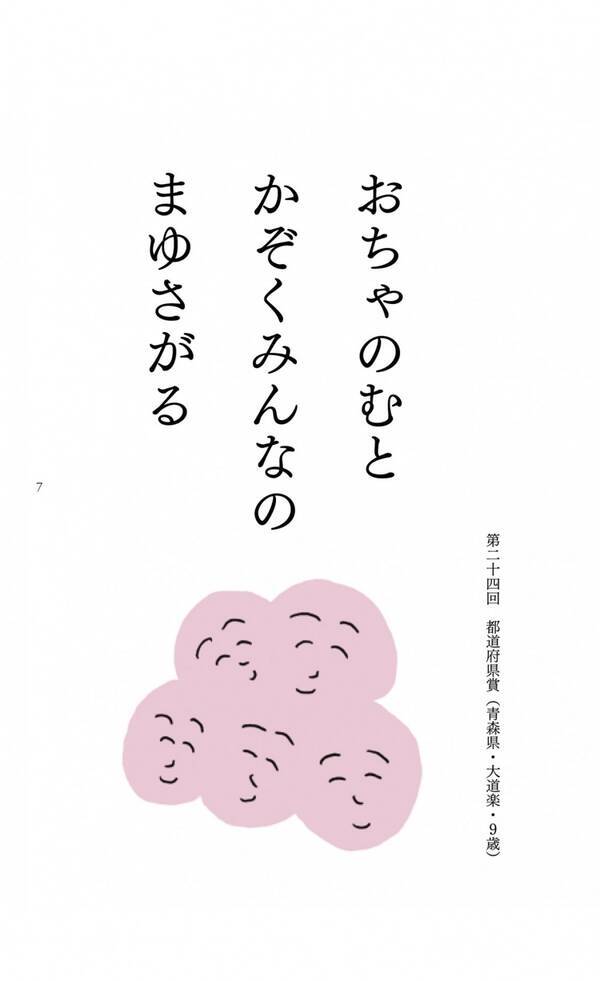 おちゃのむと
かぞくみんなの
まゆさがる
第二十四回　都道府県賞（青森県・大道楽・9歳）
7